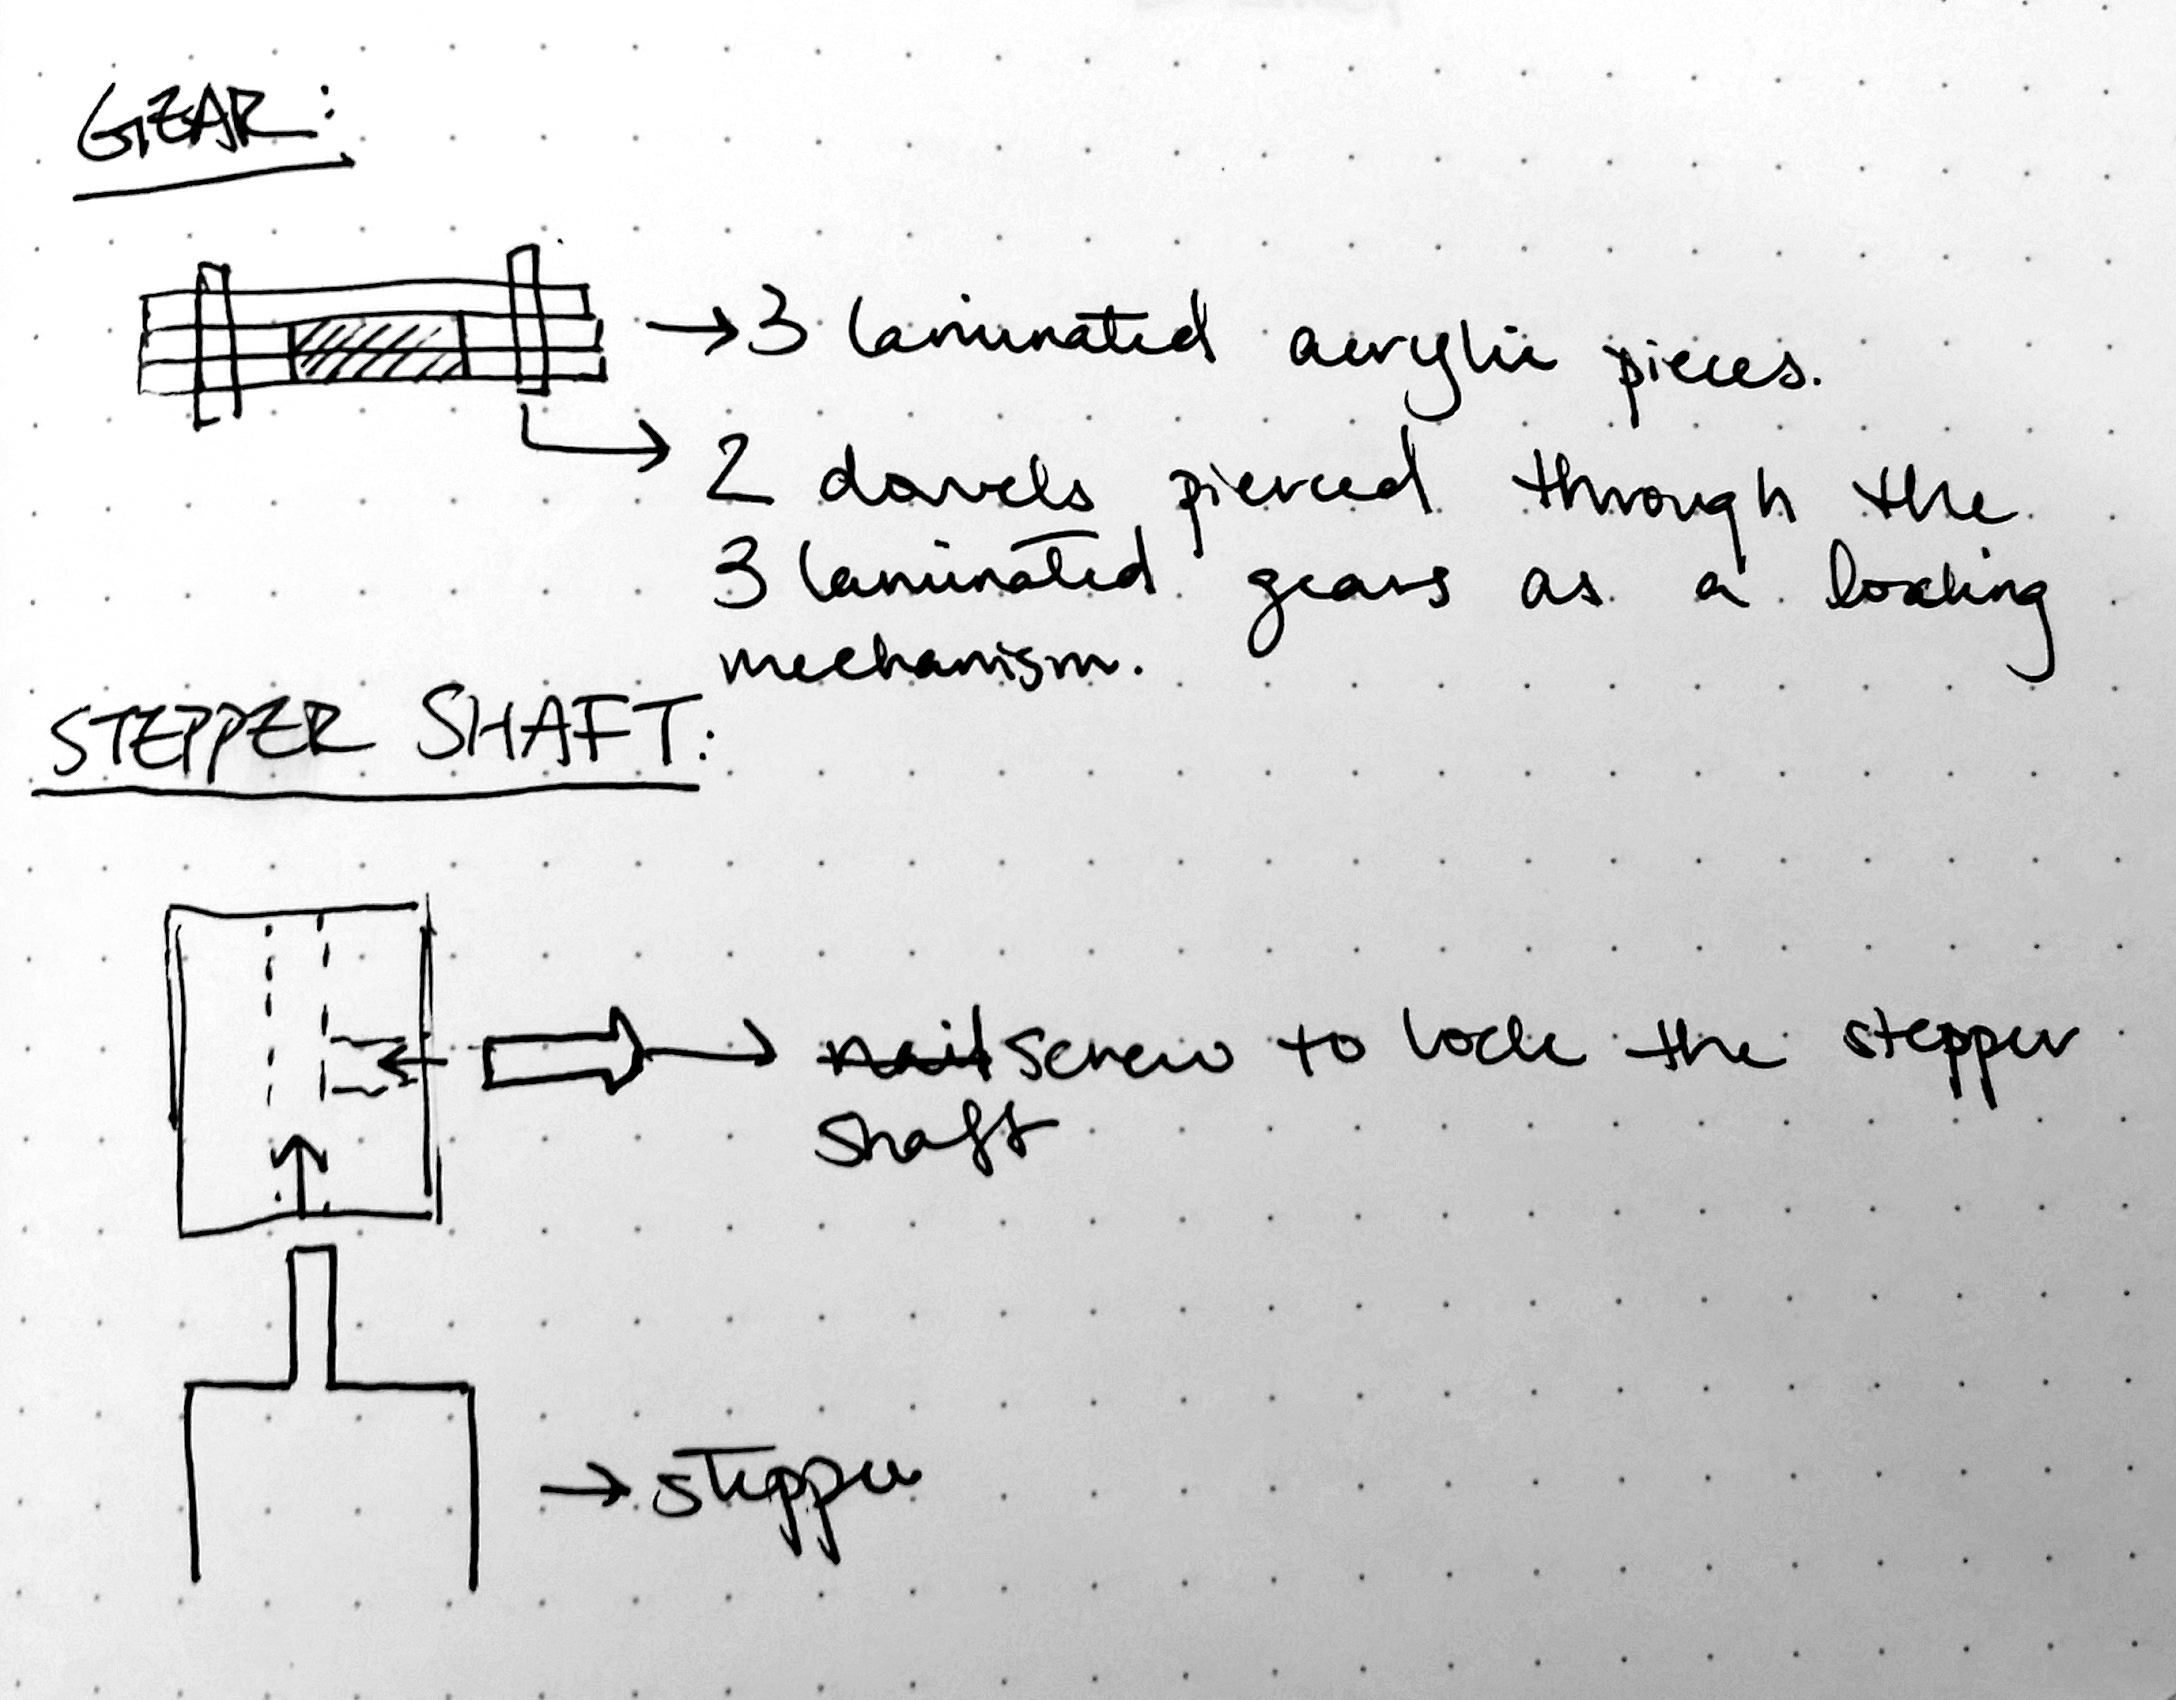 GEAR:
→3 laminated acrylic pieces.
2 dowels pierced through the
3 laminated gears as a locking
mechanism.
STEPPER SHAFT:
nail screw to lock the stepper
shaft
→ stepper